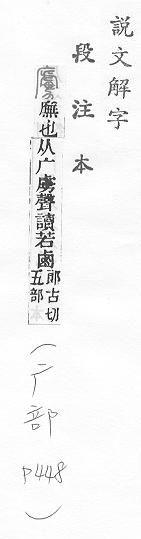 説文解字
段注本
㢚廡也从广虜聲讀若鹵郎古切
五部
(广部 P448)